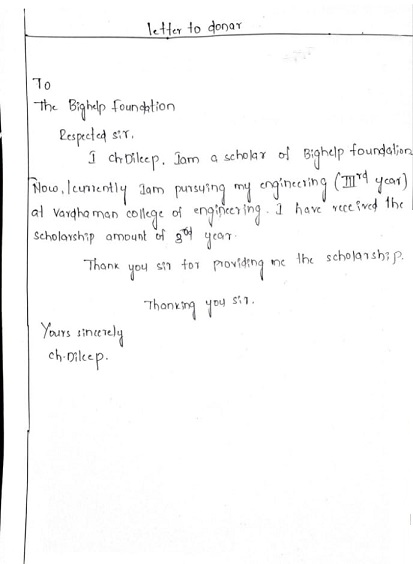 letter to donar
To
The Bighelp foundation
Respected sir.
I ch Dileep, Iam a scholar of Bighelp foundation
Now, currently Iam pursying my engineering (IIIrd year)
at Vardhaman college of engineering. I have received the
scholarship amount of 3rd year.
Thank you sir for providing me the scholarship.
Thanking you sir.
Yours sincerely
ch.Dileep.